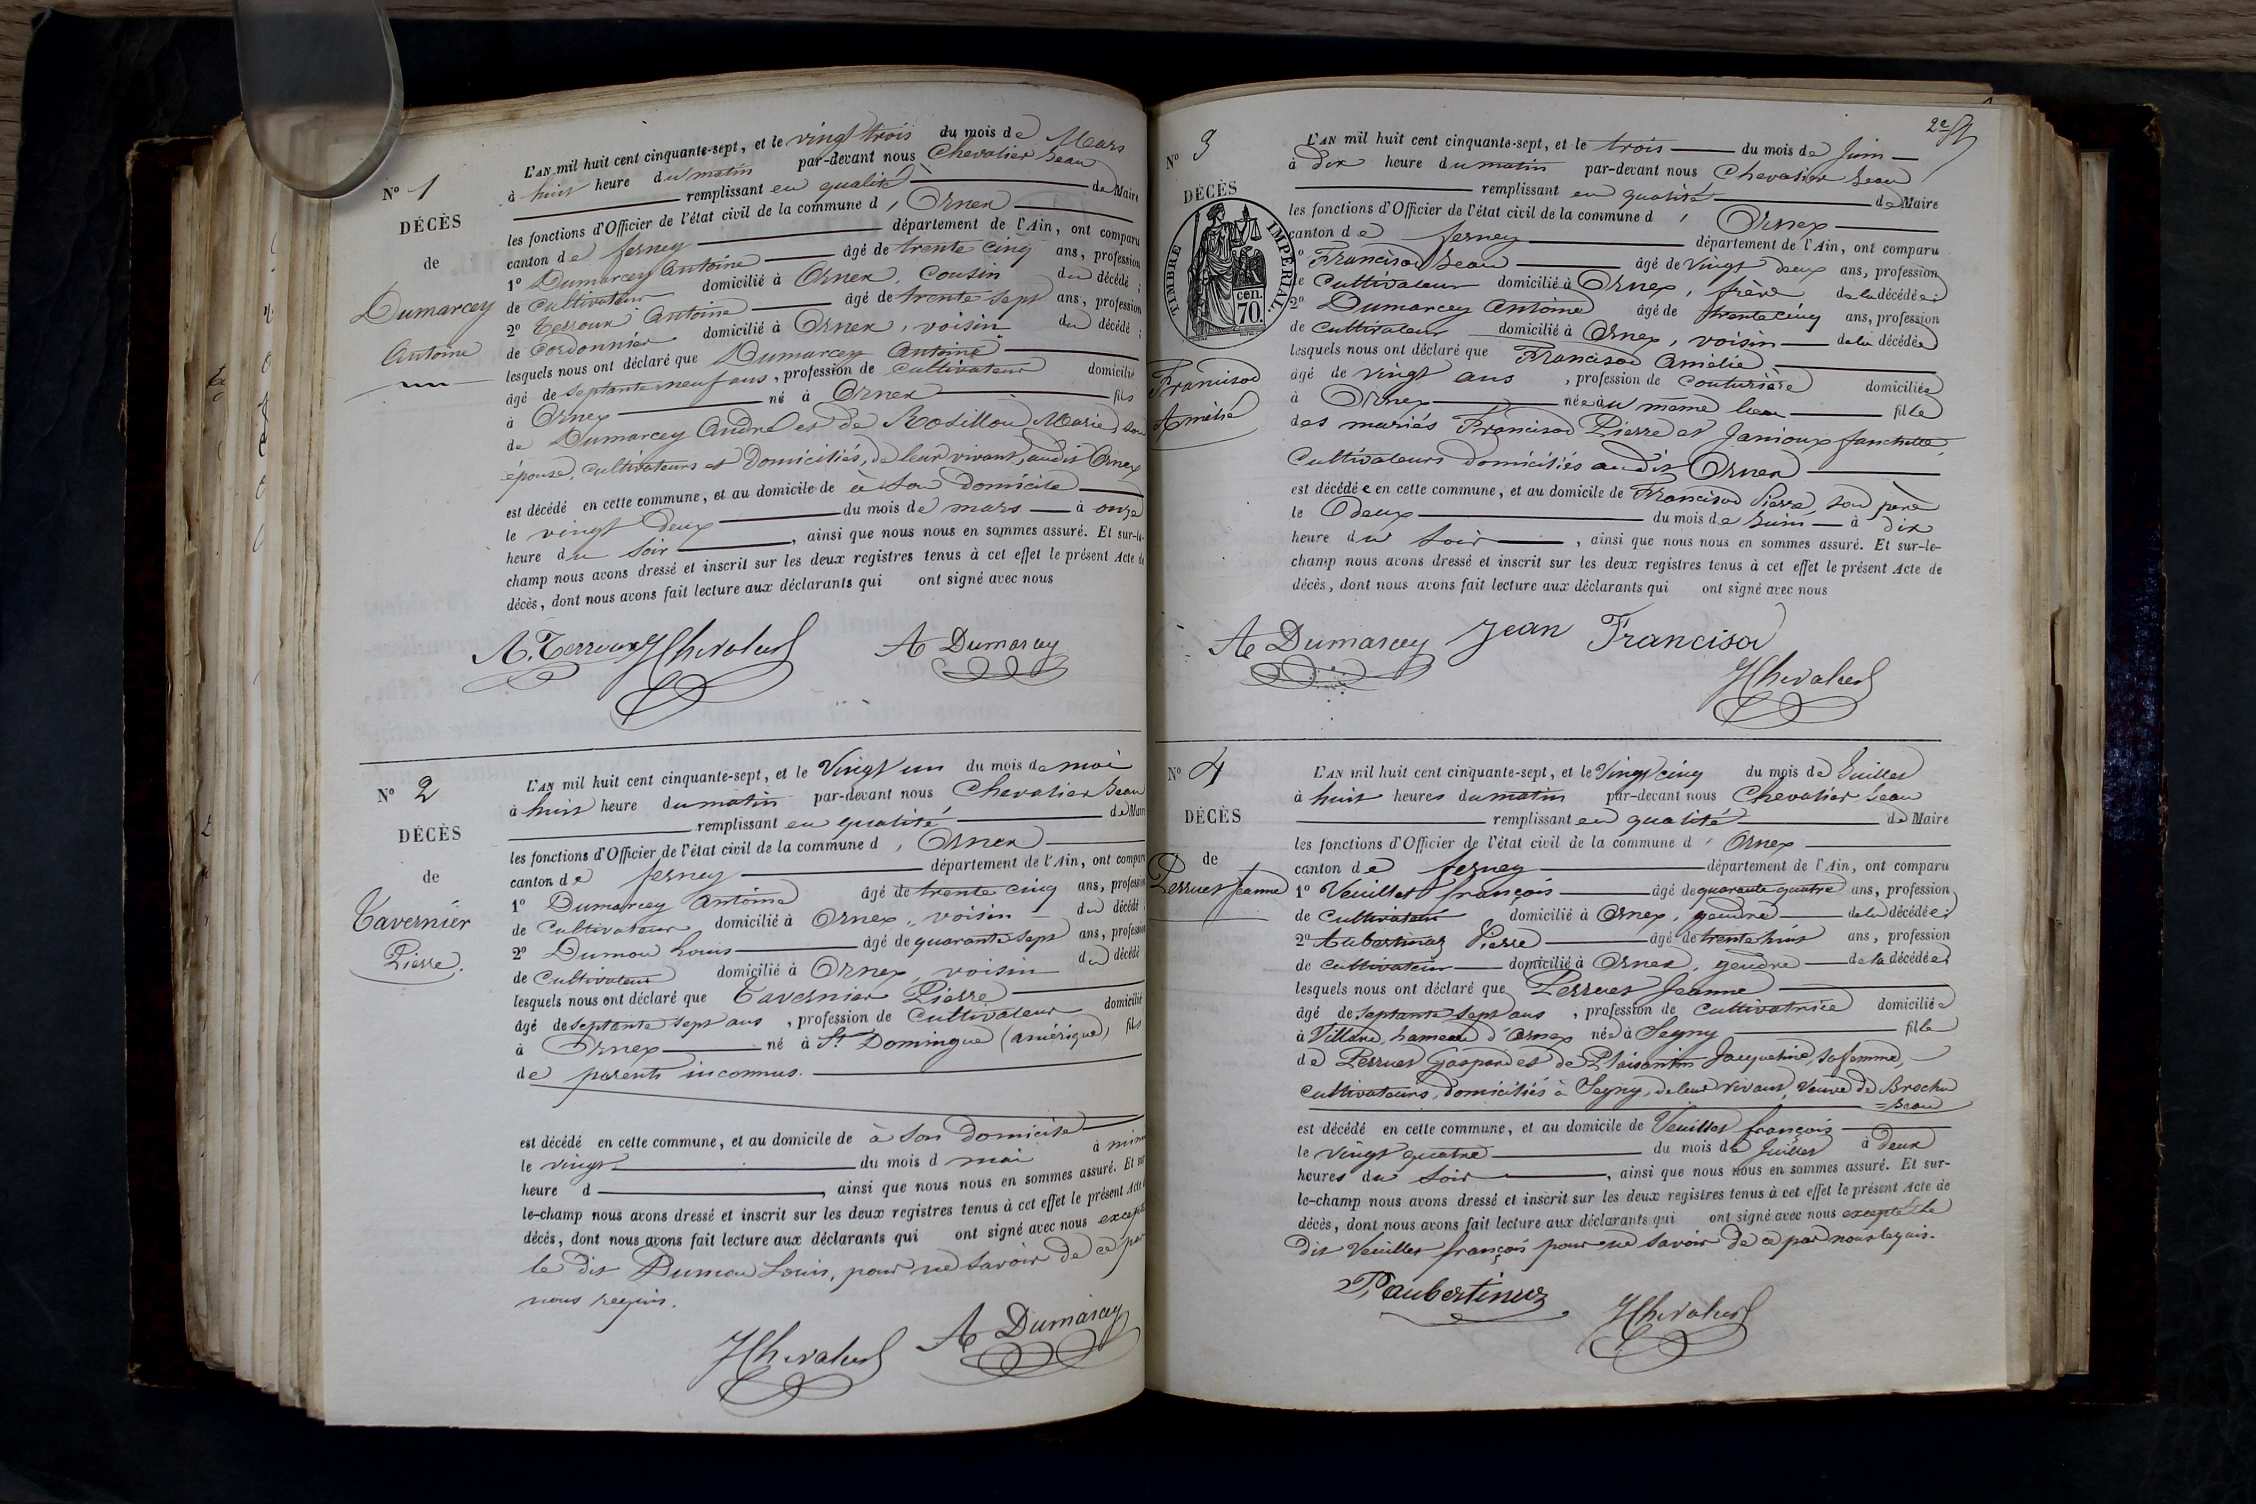 N° 1
DÉCÈS
de
Dumarcey
Antoine
L'AN mil huit cent cinquante-sept, et le vingt trois du mois de Mars
à huit heure du matin par-devant nous Chevalier Jean
remplissant en qualité de Maire
les fonctions d'Officier de l'état civil de la commune d' Ornex
canton de ferney département de l'Ain, ont comparu
1° Dumarcey Antoine âgé de trente cinq ans, profession
de Cultivateur domicilié à Ornex, cousin du décédé ;
2° Terroux Antoine âgé de trente sept ans, profession
de Cordonnier domicilié à Ornex, voisin du décédé ;
lesquels nous ont déclaré que Dumarcey Antoine
âgé de septante neuf ans, profession de Cultivateur domicilié
à Ornex né à Ornex fils
de Dumarcey André et de Rosillon Marie, son
épouse, cultivateurs et domiciliés, de leur vivant, audit Ornex
est décédé en cette commune, et au domicile de à son domicile
le vingt deux du mois de mars à onze
heure du soir, ainsi que nous nous en sommes assuré. Et sur-le-
champ nous avons dressé et inscrit sur les deux registres tenus à cet effet le présent Acte de
décès, dont nous avons fait lecture aux déclarants qui ont signé avec nous
A. Terroux JChevalier A Dumarcey
N° 2
DÉCÈS
de
Tavernier
Pierre.
L'AN mil huit cent cinquante-sept, et le Vingt un du mois de mai
à huit heure du matin par-devant nous Chevalier Jean
remplissant en qualité de Maire
les fonctions d'Officier de l'état civil de la commune d' Ornex
canton de ferney département de l'Ain, ont comparu
1° Dumarcey Antoine âgé de trente cinq ans, profession
de Cultivateur domicilié à Ornex, voisin du décédé
2° Dumou Louis âgé de quarante sept ans, profession
de Cultivateur domicilié à Ornex, voisin du décédé
lesquels nous ont déclaré que Tavernier Pierre
âgé de septante sept ans, profession de Cultivateur domicilié
à Ornex né à St Domingue (amérique) fils
de parents inconnus.
est décédé en cette commune, et au domicile de à son domicile
le vingt du mois d mai à
heure d, ainsi que nous nous en sommes assuré. Et sur
le-champ nous avons dressé et inscrit sur les deux registres tenus à cet effet le présent Acte
décès, dont nous avons fait lecture aux déclarants qui ont signé avec nous excepté
le dit Dumou Louis, pour ne savoir de ce par
nous requis.
JChevalier A Dumarcey
2e
N° 3
DÉCÈS
TIMBRE IMPÉRIAL
cen.
70.
Francisod
Amélie
L'AN mil huit cent cinquante-sept, et le trois du mois de Juin
à Dix heure du matin par-devant nous Chevalier Jean
remplissant en qualité de Maire
les fonctions d'Officier de l'état civil de la commune d' Ornex
canton de ferney département de l'Ain, ont comparu
1° Francisod Jean âgé de Vingt deux ans, profession
de Cultivateur domicilié à Ornex, frère de la décédée ;
2° Dumarcey Antoine âgé de trente cinq ans, profession
de Cultivateur domicilié à Ornex, voisin de la décédée
lesquels nous ont déclaré que Francisod Amélie
âgé de vingt ans, profession de Couturière domiciliée
à Ornex née au même lieu fille
des mariés Francisod Pierre et Janioux fanchette,
Cultivateurs domiciliés audit Ornex
est décédée en cette commune, et au domicile de Francisod Pierre, son père
le Deux du mois de Juin à dix
heure du soir, ainsi que nous nous en sommes assuré. Et sur-le-
champ nous avons dressé et inscrit sur les deux registres tenus à cet effet le présent Acte de
décès, dont nous avons fait lecture aux déclarants qui ont signé avec nous
A Dumarcey Jean Francisod
JChevalier
N° 4
DÉCÈS
de
Perruet Jeanne
L'AN mil huit cent cinquante-sept, et le Vingt cinq du mois de Juillet
à huit heures du matin par-devant nous Chevalier Jean
remplissant en qualité de Maire
les fonctions d'Officier de l'état civil de la commune d' Ornex
canton de ferney département de l'Ain, ont comparu
1° Veuillet françois âgé de quarante quatre ans, profession
de Cultivateur domicilié à Ornex, gendre de la décédée ;
2° Aubertinaz Pierre âgé de trente huit ans, profession
de cultivateur domicilié à Ornex, gendre de la décédée
lesquels nous ont déclaré que Perruet Jeanne
âgé de septante sept ans, profession de Cultivatrice domiciliée
à Villard, hameau d'Ornex née à Segny fille
de Perruet Gaspard et de Plaisantin Jacqueline, sa femme,
cultivateurs, domiciliés à Segny, de leur vivant, Veuve de Brochu
=Jean
est décédé en cette commune, et au domicile de Veuillet françois
le vingt quatre du mois de Juillet à Deux
heures du soir, ainsi que nous nous en sommes assuré. Et sur-
le-champ nous avons dressé et inscrit sur les deux registres tenus à cet effet le présent Acte de
décès, dont nous avons fait lecture aux déclarants qui ont signé avec nous excepté le
Dit Veuillet françois pour ne savoir de ce par nous requis.
P. aubertinaz JChevalier